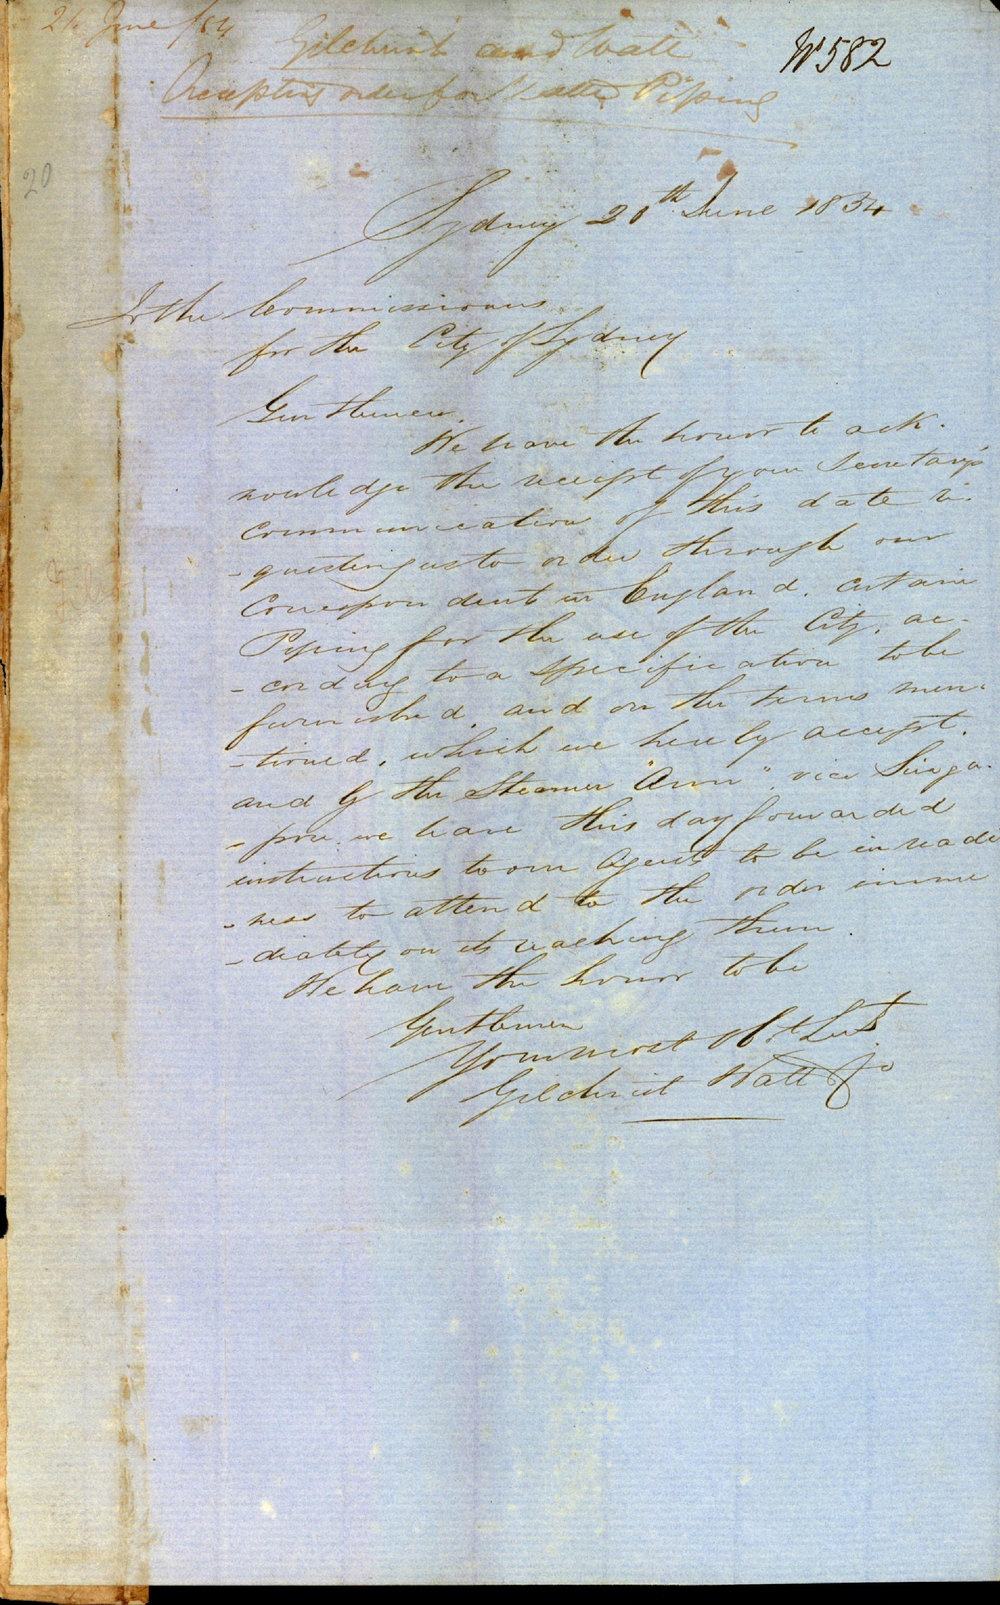 21 June /54
Gilchrist and Watt
W582
Accepting order for Water Piping
20
Sydney 20th June 1854
To the Commissioners
for the City of Sydney
Gentlemen,
We have the honor to ack-
nowledge the receipt of your Secretary's
communication of this date re-
-questing us to order through our
Correspondent in England, certain
Piping for the use of the City, ac-
-cording to a specification to be
furnished, and on the terms men-
-tioned, which we hereby accept,
and by the Steamer "Ann", via Singa-
-pore we have this day forwarded
instructions to our Agents to be in readi
-ness to attend to the order imme
-diately on its reaching them.
We have the honor to be
Gentlemen
Your most Obt Svts
Gilchrist Watt & Co